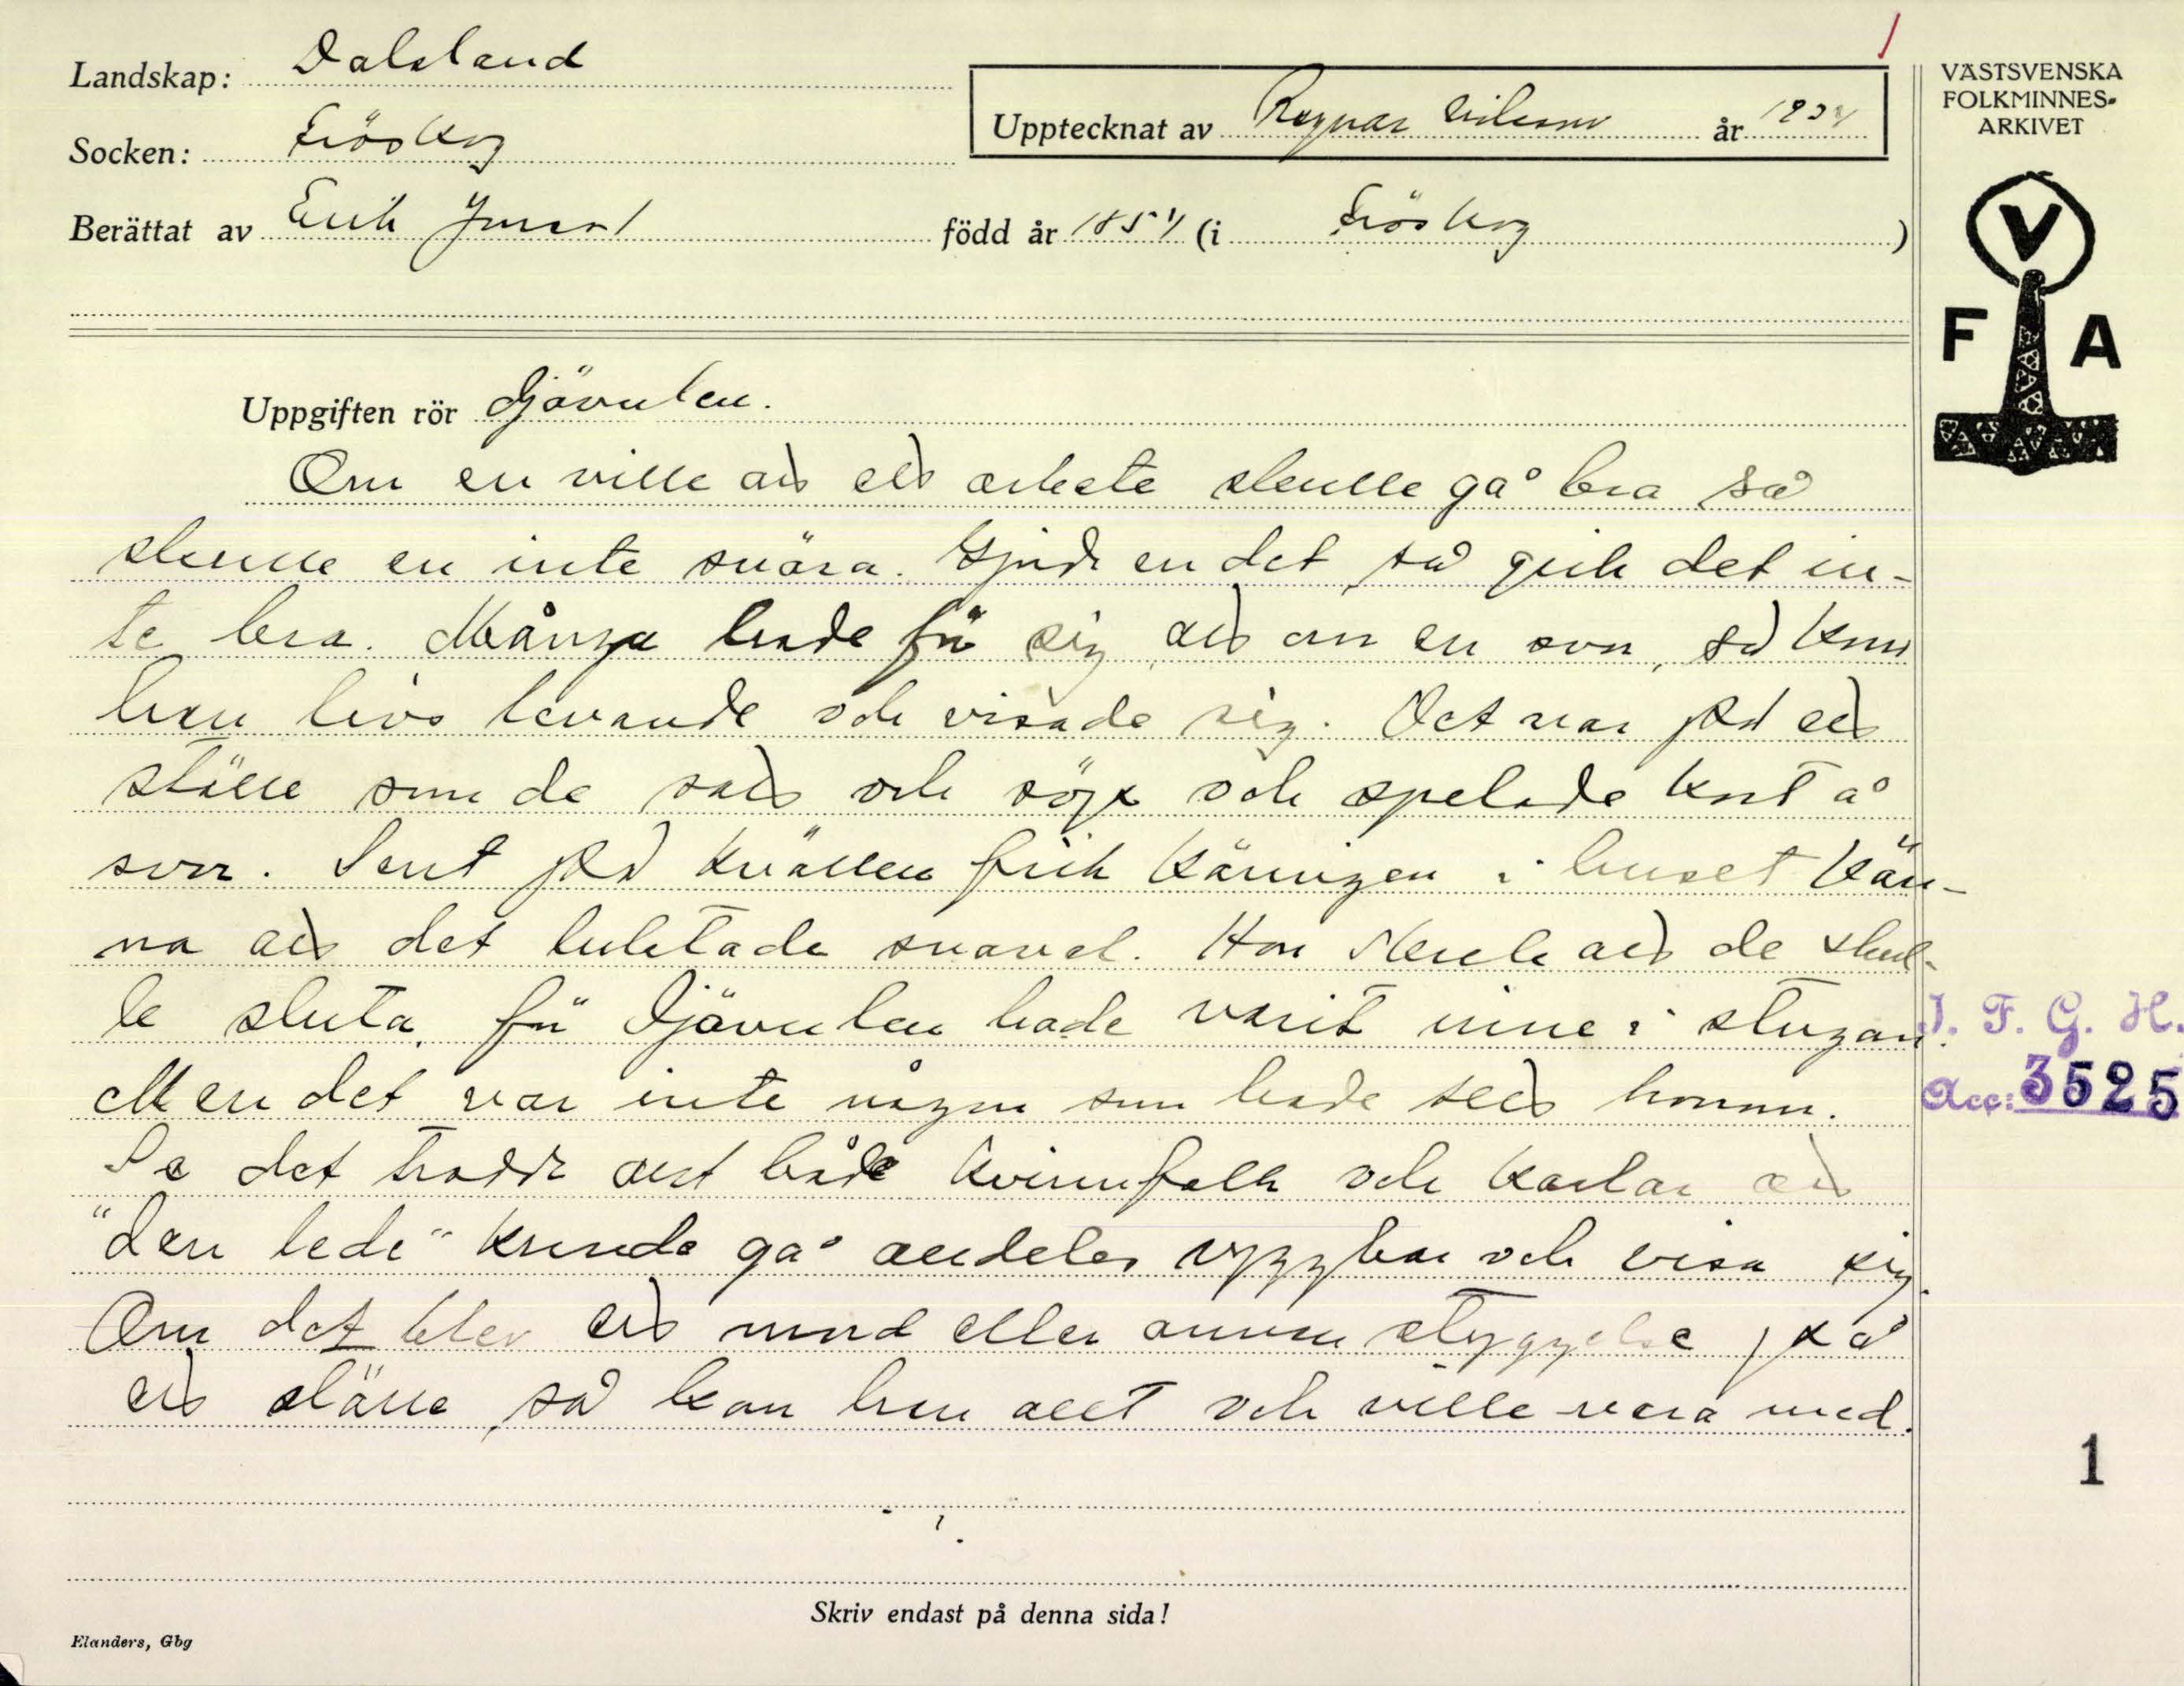 Landskap: Dalsland
Socken: Fröskog
Upptecknat av Ragnar Nilsson år 1934
Berättat av Erik Jonsson född år 1854 (i Fröskog)
VÄSTSVENSKA
FOLKMINNES-
ARKIVET
V
F A
Uppgiften rör Djävulen.
Om en ville att ett arbete skulle gå bra så
skulle en inte svära. Gjorde en det, så gick det in-
te bra. Många hade för sig, att om en svor, så kom
han livs levande och visade sig. Det var på ett
ställe som de satt och söp och spelade kort å
svor. Sent på kvällen fick käringen i huset kän-
na att det luktade svavel. Hon tänkte att de skul-
le sluta, för Djävulen hade varit inne i stugan.
Men det var inte någon som hade sett honom.
Se det trodde allt både kvinnfolk och karlar att
"den lede" kunde gå alldeles uppbar och visa sig.
Om det blev ett mord eller annan styggelse på
ett ställe, så kom han allt och ville vara med.
J. F. G. H.
Acc: 3525
1
Skriv endast på denna sida!
Elanders, Gbg